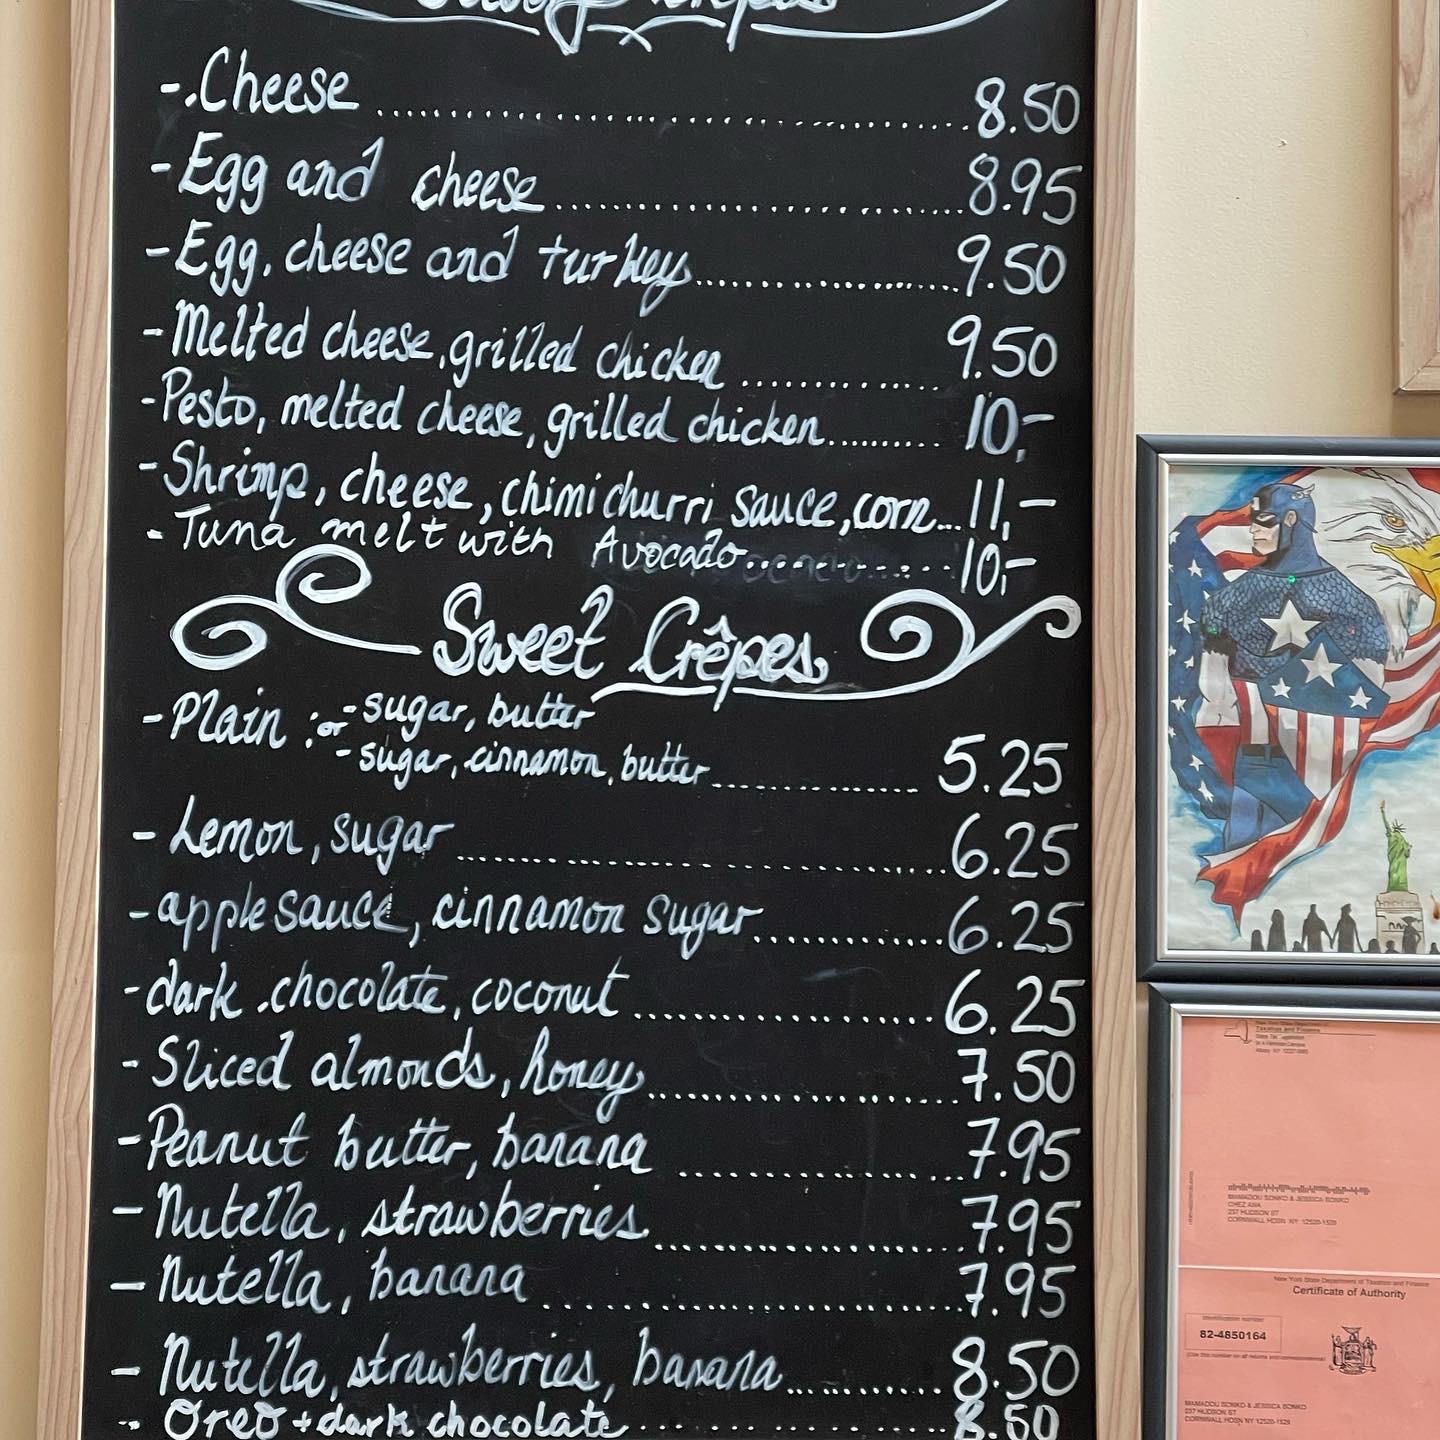 Savory Crêpes
- .Cheese .......... 8.50
- Egg and cheese .......... 8.95
- Egg, cheese and turkey .......... 9.50
- Melted cheese, grilled chicken .......... 9.50
- Pesto, melted cheese, grilled chicken .......... 10,-
- Shrimp, cheese, chimichurri sauce, corn... 11,-
- Tuna melt with Avocado .......... 10,-
Sweet Crêpes
- Plain : or - sugar, butter
- sugar, cinnamon, butter .......... 5.25
- Lemon, sugar .......... 6.25
- apple sauce, cinnamon sugar .......... 6.25
- dark .chocolate, coconut .......... 6.25
- Sliced almonds, honey .......... 7.50
- Peanut butter, banana .......... 7.95
- Nutella, strawberries .......... 7.95
- Nutella, banana .......... 7.95
- Nutella, strawberries, banana .......... 8.50
- Oreo + dark chocolate .......... 8.50
New York State Department of
Taxation and Finance
MAMADOU SONKO & JESSICA SONKO
CHEZ AWA
237 HUDSON ST
CORNWALL HDSN NY 12520-1529
New York State Department of Taxation and Finance
Certificate of Authority
Identification number
82-4850164
(Use this number on all returns and correspondence)
MAMADOU SONKO & JESSICA SONKO
237 HUDSON ST
CORNWALL HDSN NY 12520-1529